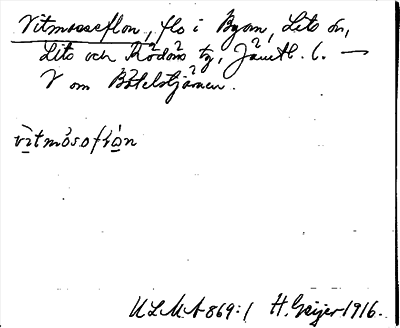 Vitmosseflon, flo i Byom, Lits sn,
Lits och Rödöns tg, Jämtl. l. —
V om Båtelstjärnen.
vitmósoflån
ULMA 869:1 H. Geijer 1916.